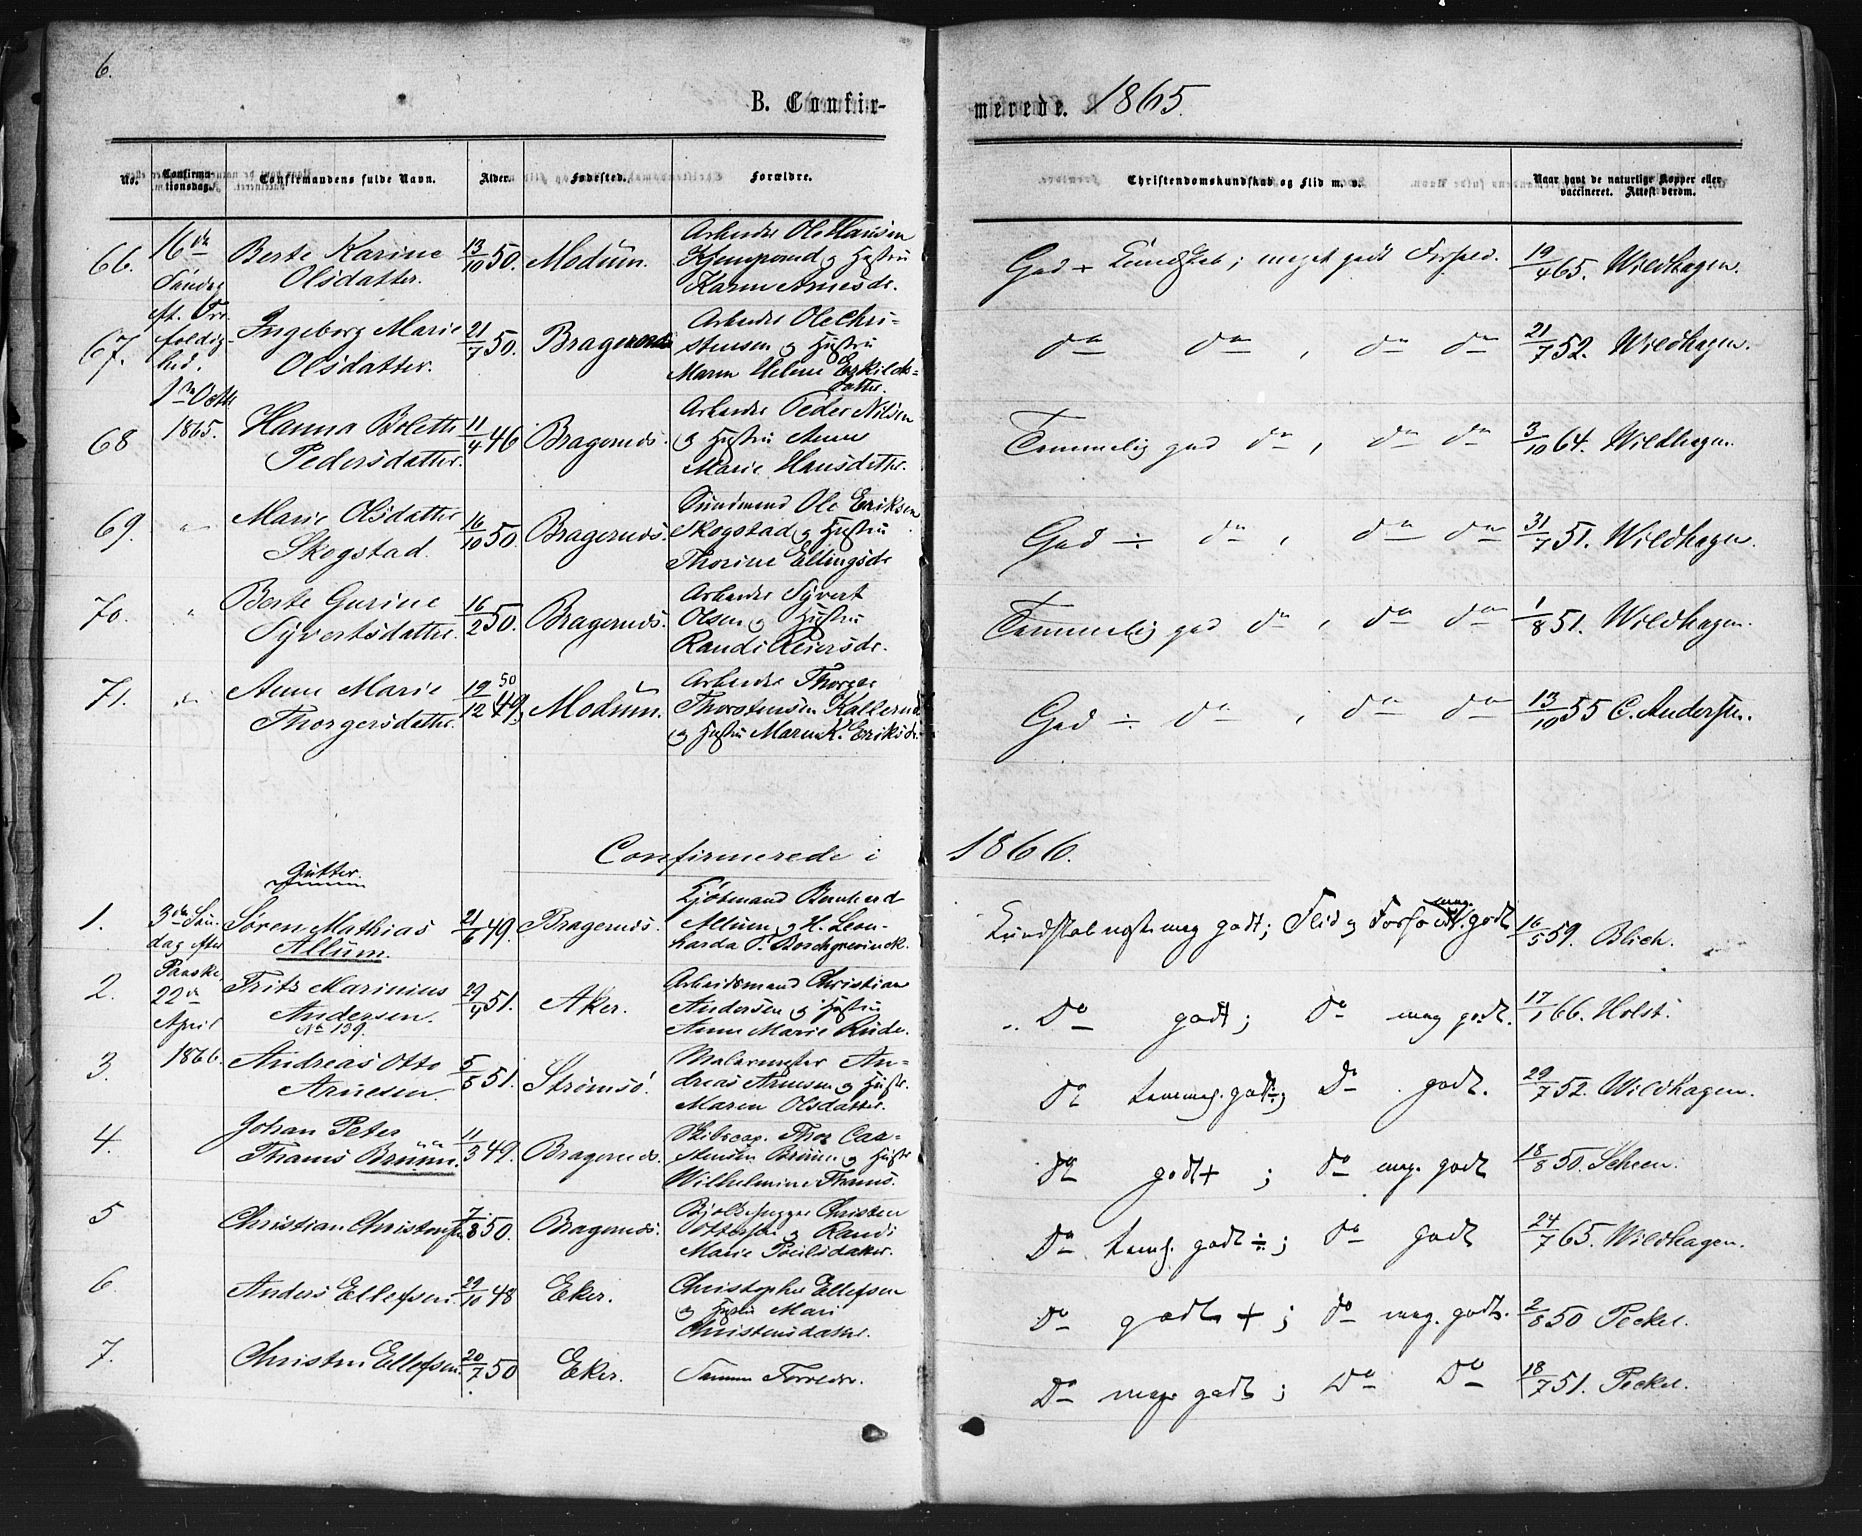 6.
B. Confir-
merede. 1865.
No. Confirmationsdag. Confirmandens fulde Navn. Alder. Fødested. Forældre. Christendomskundskab og Flid m. v. Naar havt de naturlige Kopper eller vaccineret. Attest derom.
66. 16de Søndag eft. Trefoldighed. 1ste Octbr 1865.
Berte Karine Olsdatter. 13/10 50. Modum.
Arbeider Ole Hansen
og Hustru
Karen Arnesdr.
God + Kundskab; meget godt Forhold. 19/4 65. Wildhagen.
67. Ingeborg Marie Olsdatter. 21/7 50. Bragernes
Arbeider Ole Chri-
stensen og Hustru
Maren Helene Eskilds-
datter.
do do, do do 21/7 52. Wildhagen.
68 Hanna Bolette Pedersdatter. 11/4 46 Bragernes.
Arbeider Peder Nilsen
og Hustru Anne
Marie Hansdatter.
Temmelig god do, do do 3/10 64. Wildhagen.
69. " Marie Olsdatter Skogstad. 16/10 50. Bragernes.
Ole Eriksen
Skogstad og Hustru
Thorine Ellingsdr
God ÷ do, do do 31/7 51. Wildhagen.
70. " Berte Gurine Syvertsdatter. 16/2 50. Bragernes.
Arbeider Syvert
Olsen og Hustru
Randi Reiersdr.
Temmelig god do, do do 1/8 51. Wildhagen.
71. " Anne Marie Thorgersdatter. 19/12 49. 50 Modum.
Arbeider Thorger
Thorstensen Kallerud
og Hustru Maren K. Eriksdr.
God ÷ do, do do 13/10 55 C. Andersen.
Confirmerede i 1866.
Gutter.
1. 3die Søndag efter Paaske 22de April 1866.
Søren Mathias Allum. 21/6 49. Bragernes.
Kjøbmand Bernhard
Allum og H. Leon-
harda P. Borchgrevinck.
Kundskab meg godt; Flid og Forhold meg. godt 16/5 59. Blich.
2. Fritz Marinius Andersen. No 139. 29/4 51. Aker.
Arbeidsmand Christian
Andersen og Hustru
Anne Marie Rude.
Do godt; do meg godt. 17/1 66. Holst.
3. Andreas Otto Arnesen. 5/5 51. Strømsø.
Malermester An-
dreas Arnesen og Hustr.
Maren Olsdatter.
do temmel. godt ÷; Do godt. 29/7 52. Wildhagen.
4. Johan Peter Thams Bruun. 11/3 49. Bragernes.
Skibscap. Thor Car-
stensen Bruun og Hustr
Wilhelmine Thams.
do godt +; do meg. godt 18/8 50. Scheen.
5 Christian Christensen 7/8 50. Bragernes.
Christen
Ottersen og Randi
Marie Poulsdatter.
Do tem. godt ÷; do godt 24/7 65. Wildhagen.
6 Anders Ellefsen. 29/10 48 Eker.
Christopher Ellefsen
og Hustru Mari
Christensdatter.
Do godt +; do meg. godt. 2/8 50 Peckel.
7. Christen Ellefsen. 20/7 50 Eker. Samme Forældre.
Do meget godt; Do Do 18/7 51. Peckel.